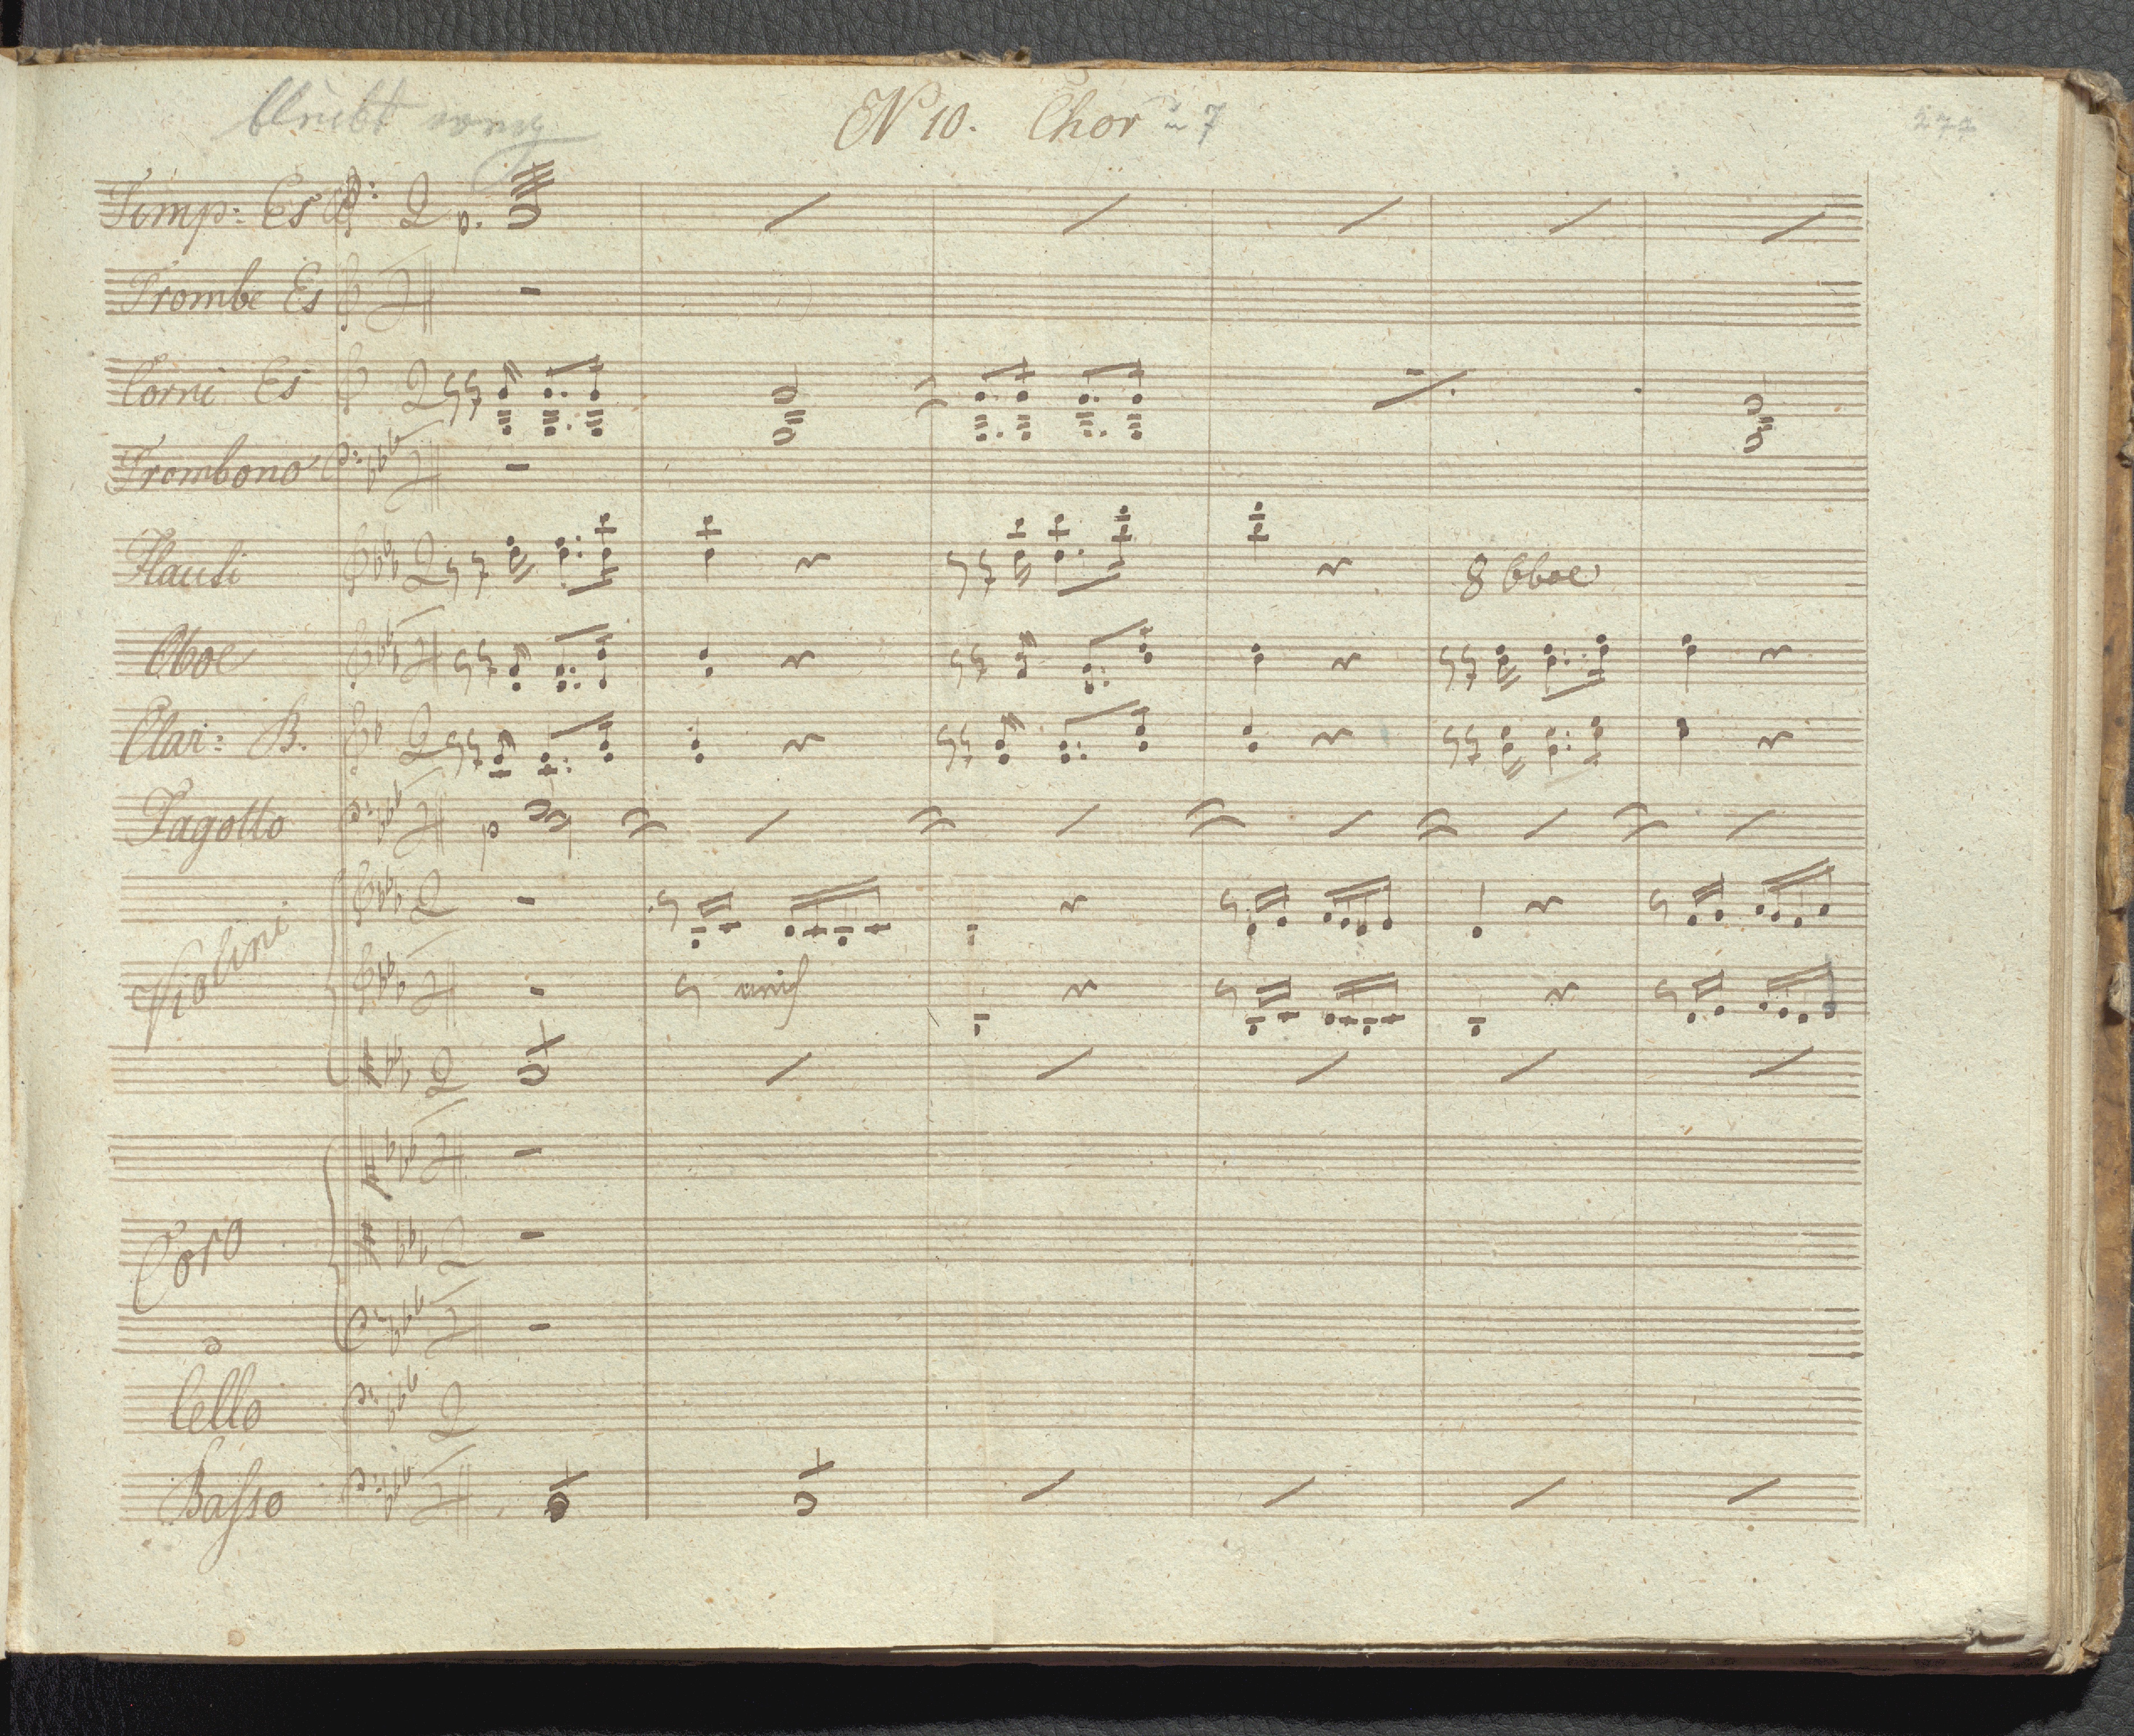 bleibt weg
N 10. Chor 7
277
Timp: Es
p.
Trombe Es
Corni Es
Trombono
Flauti
8 Oboe
Oboe
Clar: B.
Fagotto
p
Violini
unis
Coro
Cello
Basso